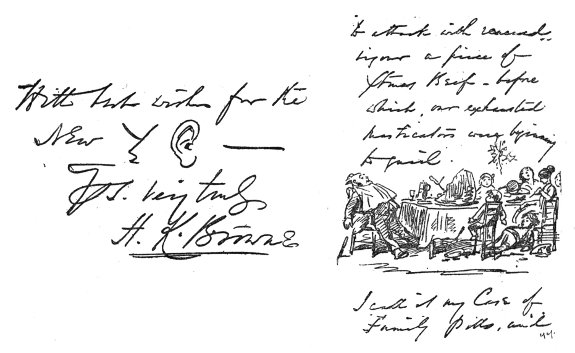 With best wishes for the
New Y
Yrs. very truly
H. K. Browne
to attack with renewed
vigour a piece of
Xmas Beef - before
which, our exhausted
masticators were beginning
to quail.
I call it my Case of
Family Pills, and